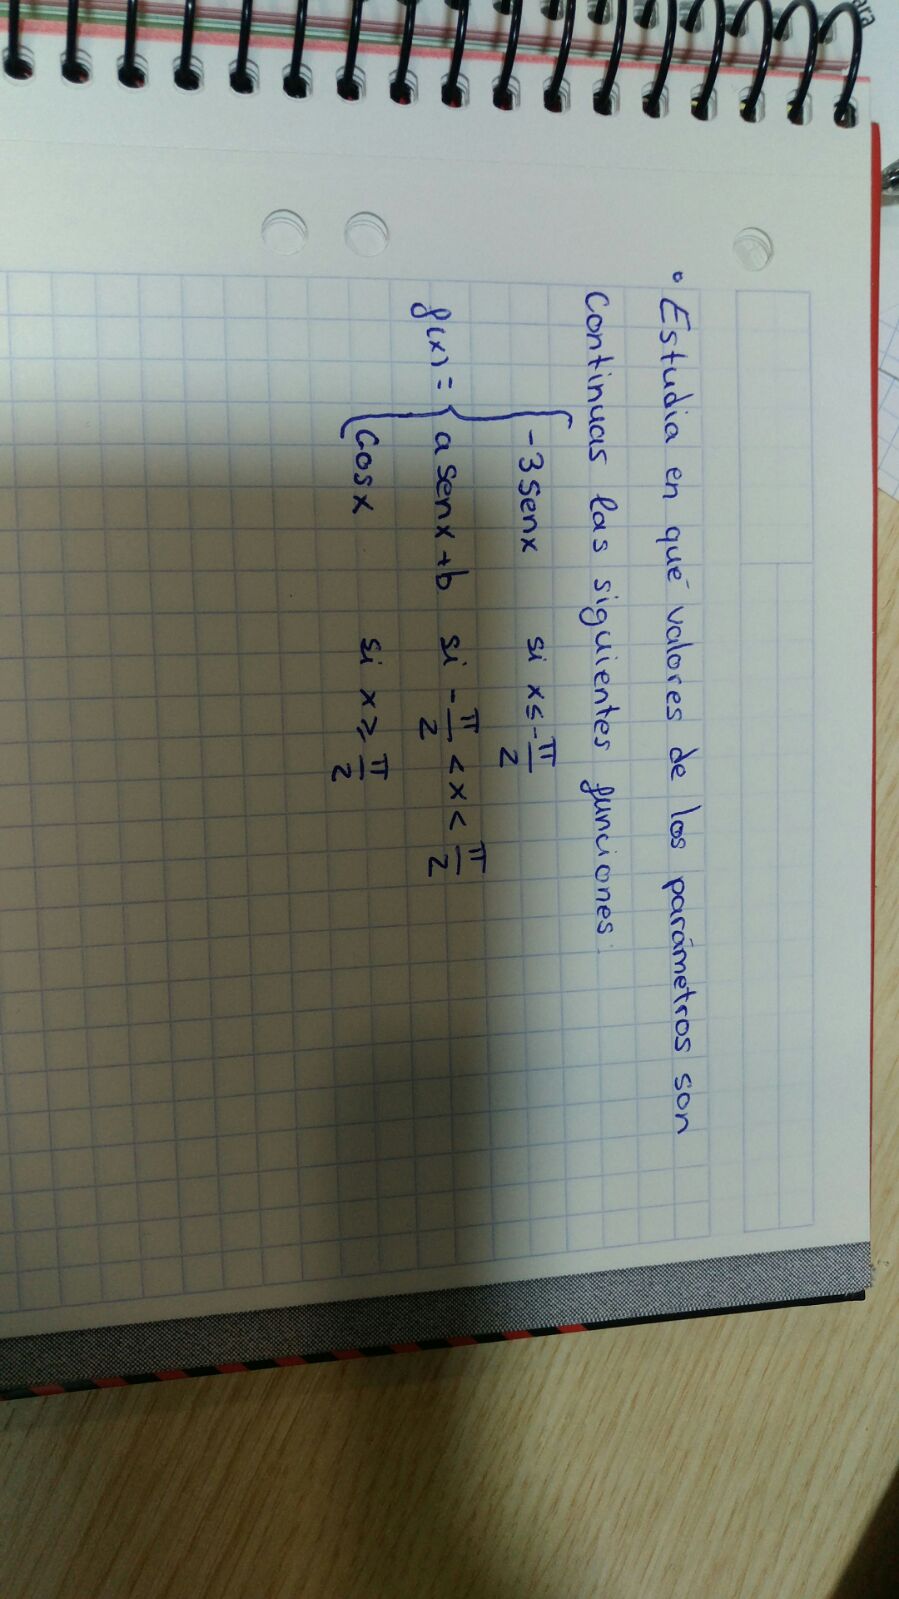 • Estudia en qué valores de los parámetros son
continuas las siguientes funciones:
-3 senx si x ≤ -π/2
f(x) = { a senx + b si -π/2 < x < π/2
cos x si x ≥ π/2
ara